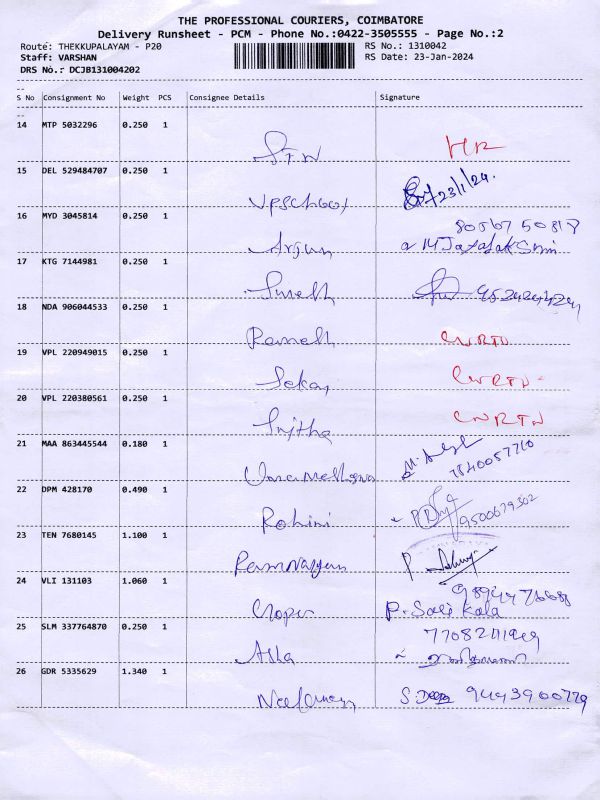 THE PROFESSIONAL COURIERS, COIMBATORE
Delivery Runsheet - PCM - Phone No.:0422-3505555 - Page No.:2
Route: THEKKUPALAYAM - P20 RS No.: 1310042
Staff: VARSHAN RS Date: 23-Jan-2024
DRS No.: DCJB131004202
S No Consignment No Weight PCS Consignee Details Signature
14 MTP 5032296 0.250 1
STW
15 DEL 529484707 0.250 1
23/1/24.
16 MYD 3045814 0.250 1
80567 50818
Arjun
17 KTG 7144981 0.250 1
Suresh
18 NDA 906044533 0.250 1
Ramesh CNRTN
19 VPL 220949015 0.250 1
Sekar CNRTN
20 VPL 220380561 0.250 1
Sujitha CNRTN
21 MAA 863445544 0.180 1
Uma Maheswari
22 DPM 428170 0.490 1
Rohini 9500679302
23 TEN 7680145 1.100 1
Ramnarayan P.
24 VLI 131103 1.060 1
P. Sasi Kala
25 SLM 337764870 0.250 1
Asha
26 GDR 5335629 1.340 1
S. Deepa 9443900779